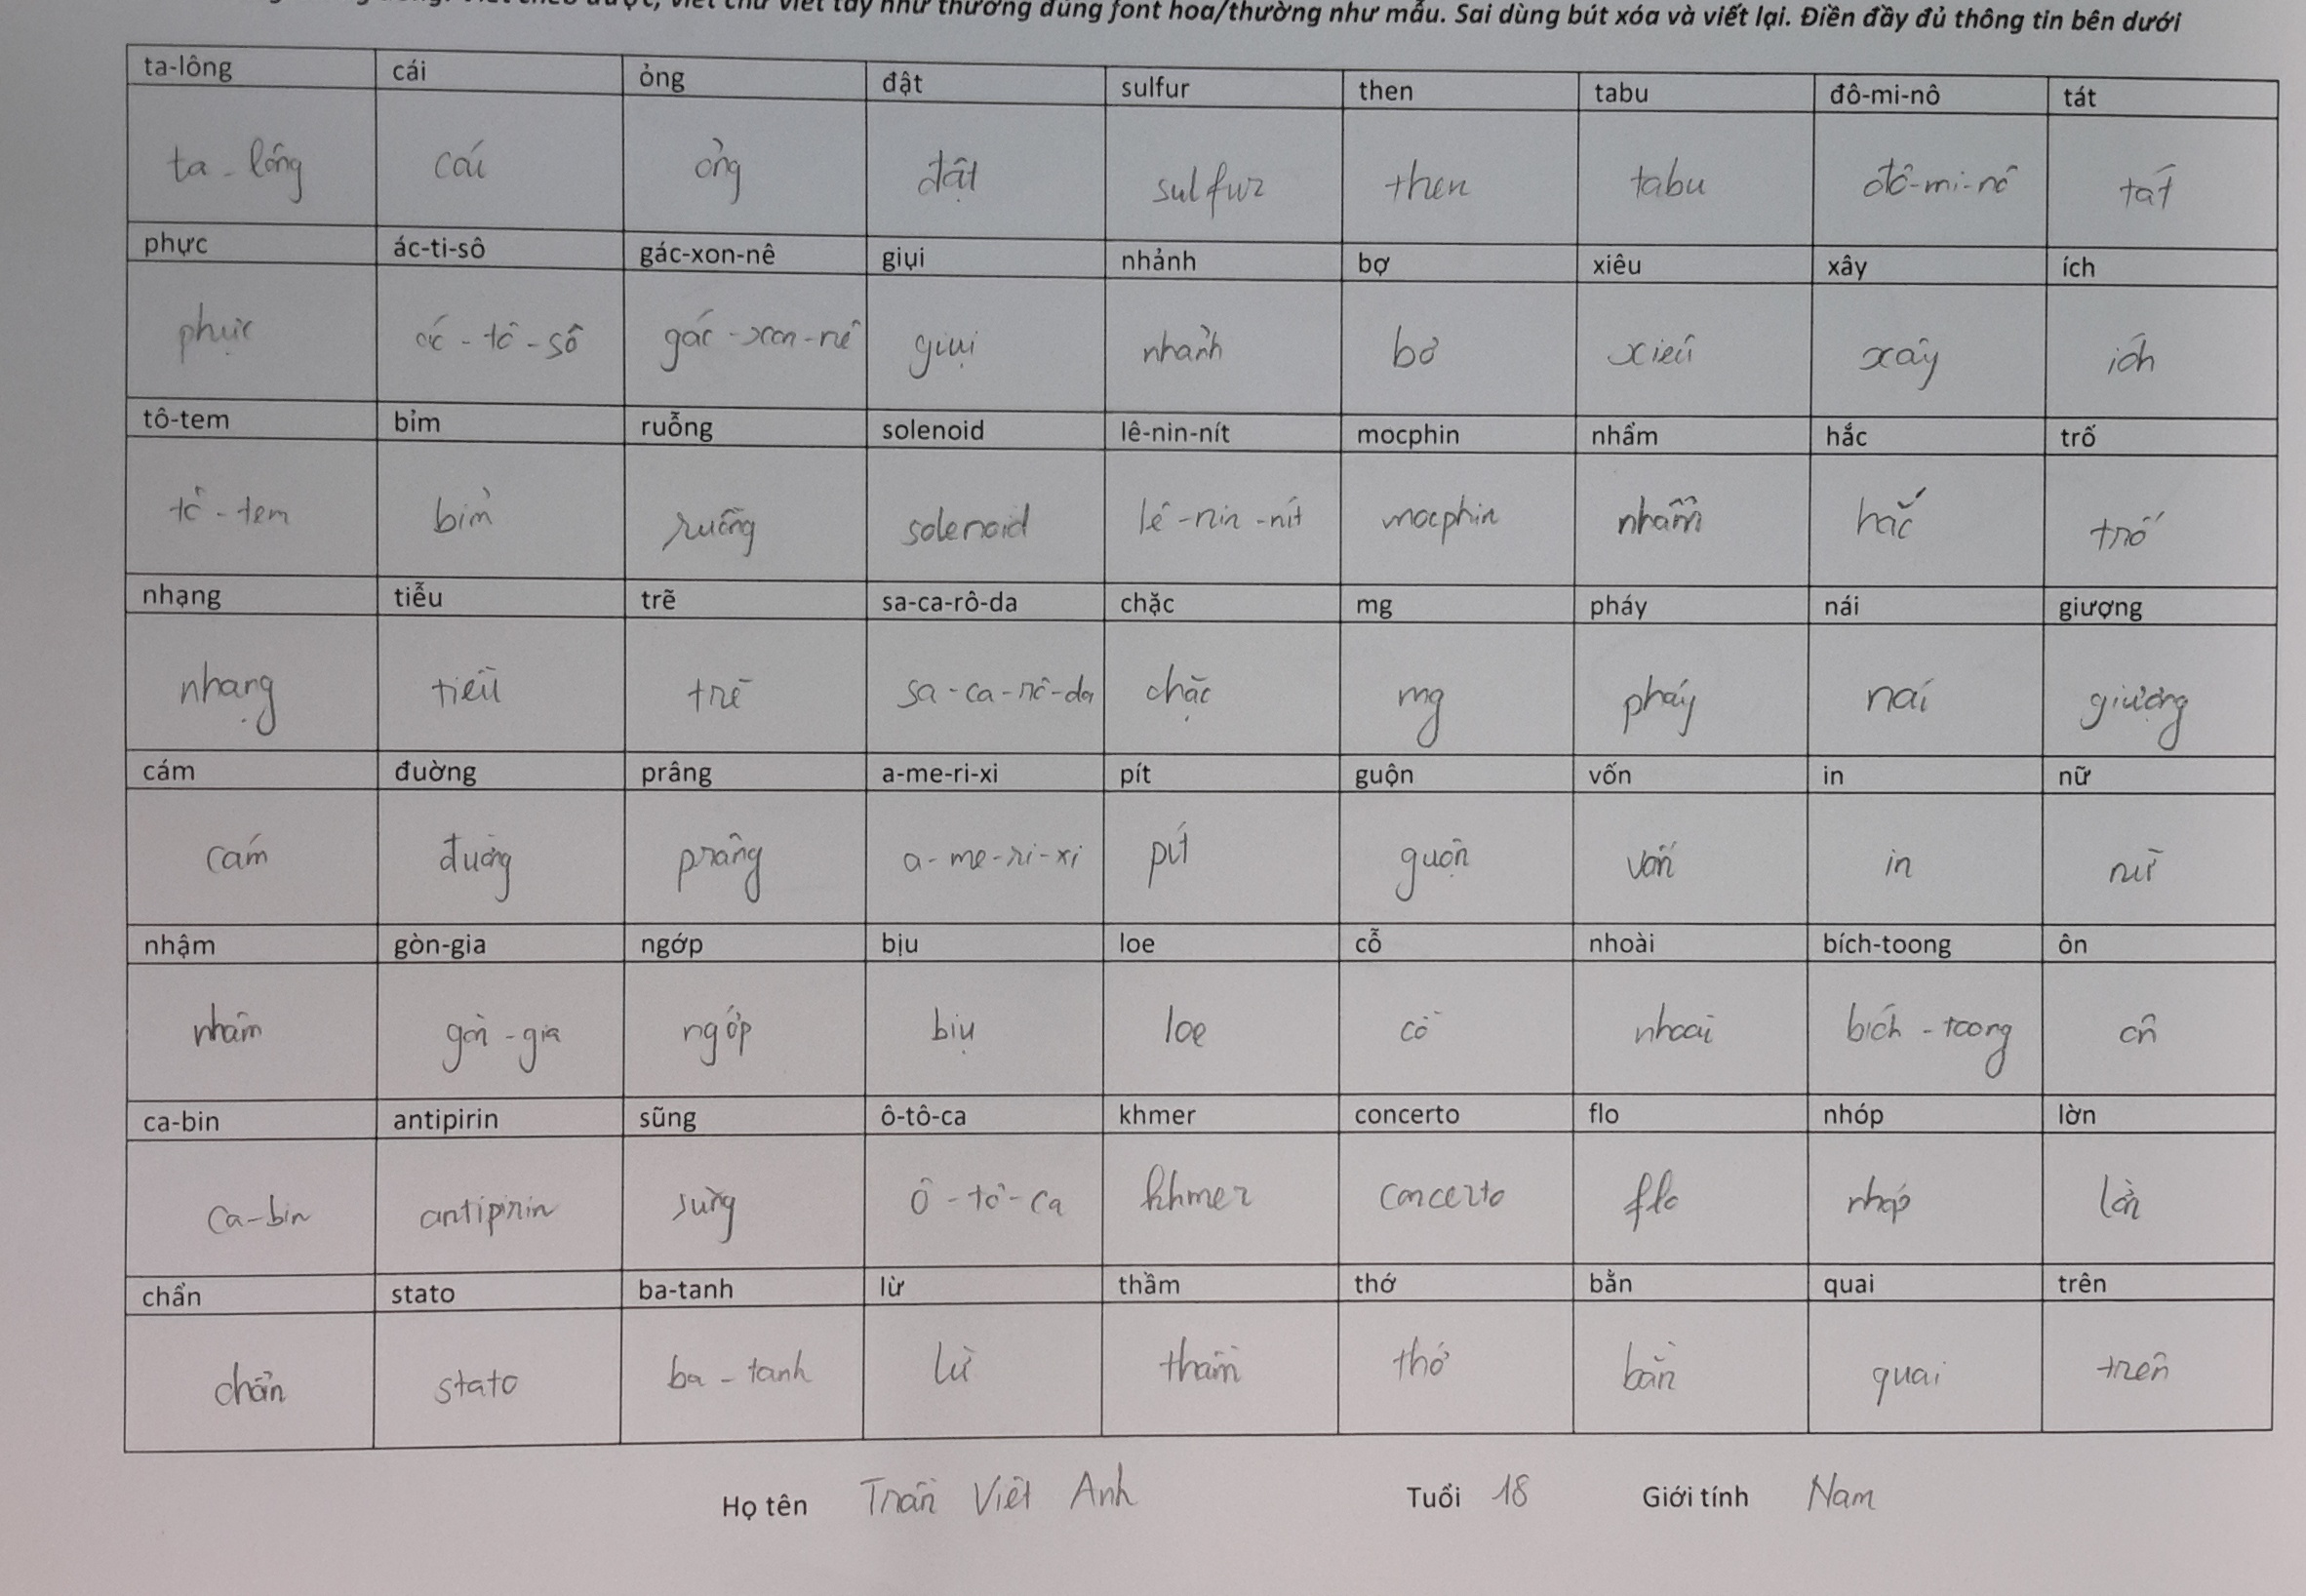 viết chữ viết tay như thường dùng font hoa/thường như mẫu. Sai dùng bút xóa và viết lại. Điền đầy đủ thông tin bên dưới
ta-lông cái ỏng đật sulfur then tabu đô-mi-nô tát
ta-lông cái ỏng đật sulfur then tabu đô-mi-nô tát
phực ác-ti-sô gác-xon-nê giụi nhảnh bợ xiêu xây ích
phực ác-tô-sô gác-xon-nê giụi nhảnh bơ xiêu xây ích
tô-tem bỉm ruỗng solenoid lê-nin-nít mocphin nhẩm hắc trố
tô-tem bỉm ruỗng solenoid lê-nin-nít mocphin nhẩm hắc trố
nhạng tiễu trẽ sa-ca-rô-da chặc mg pháy nái giượng
nhạng tiễu trẽ sa-ca-rô-da chặc mg pháy nái giượng
cám đuờng prâng a-me-ri-xi pít guộn vốn in nữ
cám đuờng prâng a-me-ri-xi pít guộn vốn in nữ
nhậm gòn-gia ngớp bịu loe cỗ nhoài bích-toong ôn
nhâm gòn-gia ngớp bịu loe cỗ nhoài bích-toong ôn
ca-bin antipirin sũng ô-tô-ca khmer concerto flo nhóp lờn
ca-bin antipirin sũng ô-tô-ca khmer concerto flo nhóp lờn
chẩn stato ba-tanh lừ thầm thớ bằn quai trên
chẩn stato ba-tanh lừ thầm thớ bằn quai trên
Họ tên Trần Việt Anh Tuổi 18 Giới tính Nam